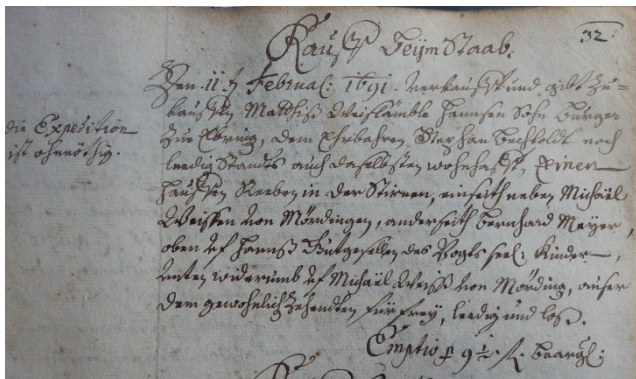 32.
Kauff beÿm Staab.
Den 11.t Februar: 1691. verkaufft und gibt zu=
kauffen Matthiß Weißlämble Hannsen Sohn burger
zue Ebring, dem Ehrbahren Stephan Bechtoldt noch
leedig Standts auch daselbsten wohnhafft, Einen
hauffen Reeben in der Stirnen, einseith neben Michäel
Weissen von Mördingen, anderseith Bernhard Meÿer,
oben uf Hannß des Vogts seel: Kinder,
unten widerumb uf Michäel Weiß von Mörding, ausser
dem gewohnlich Zehendten für freÿ, leedig und loß.
Emptio p 9½ fl. baargl:
die Expedition
ist ohnnöthig.